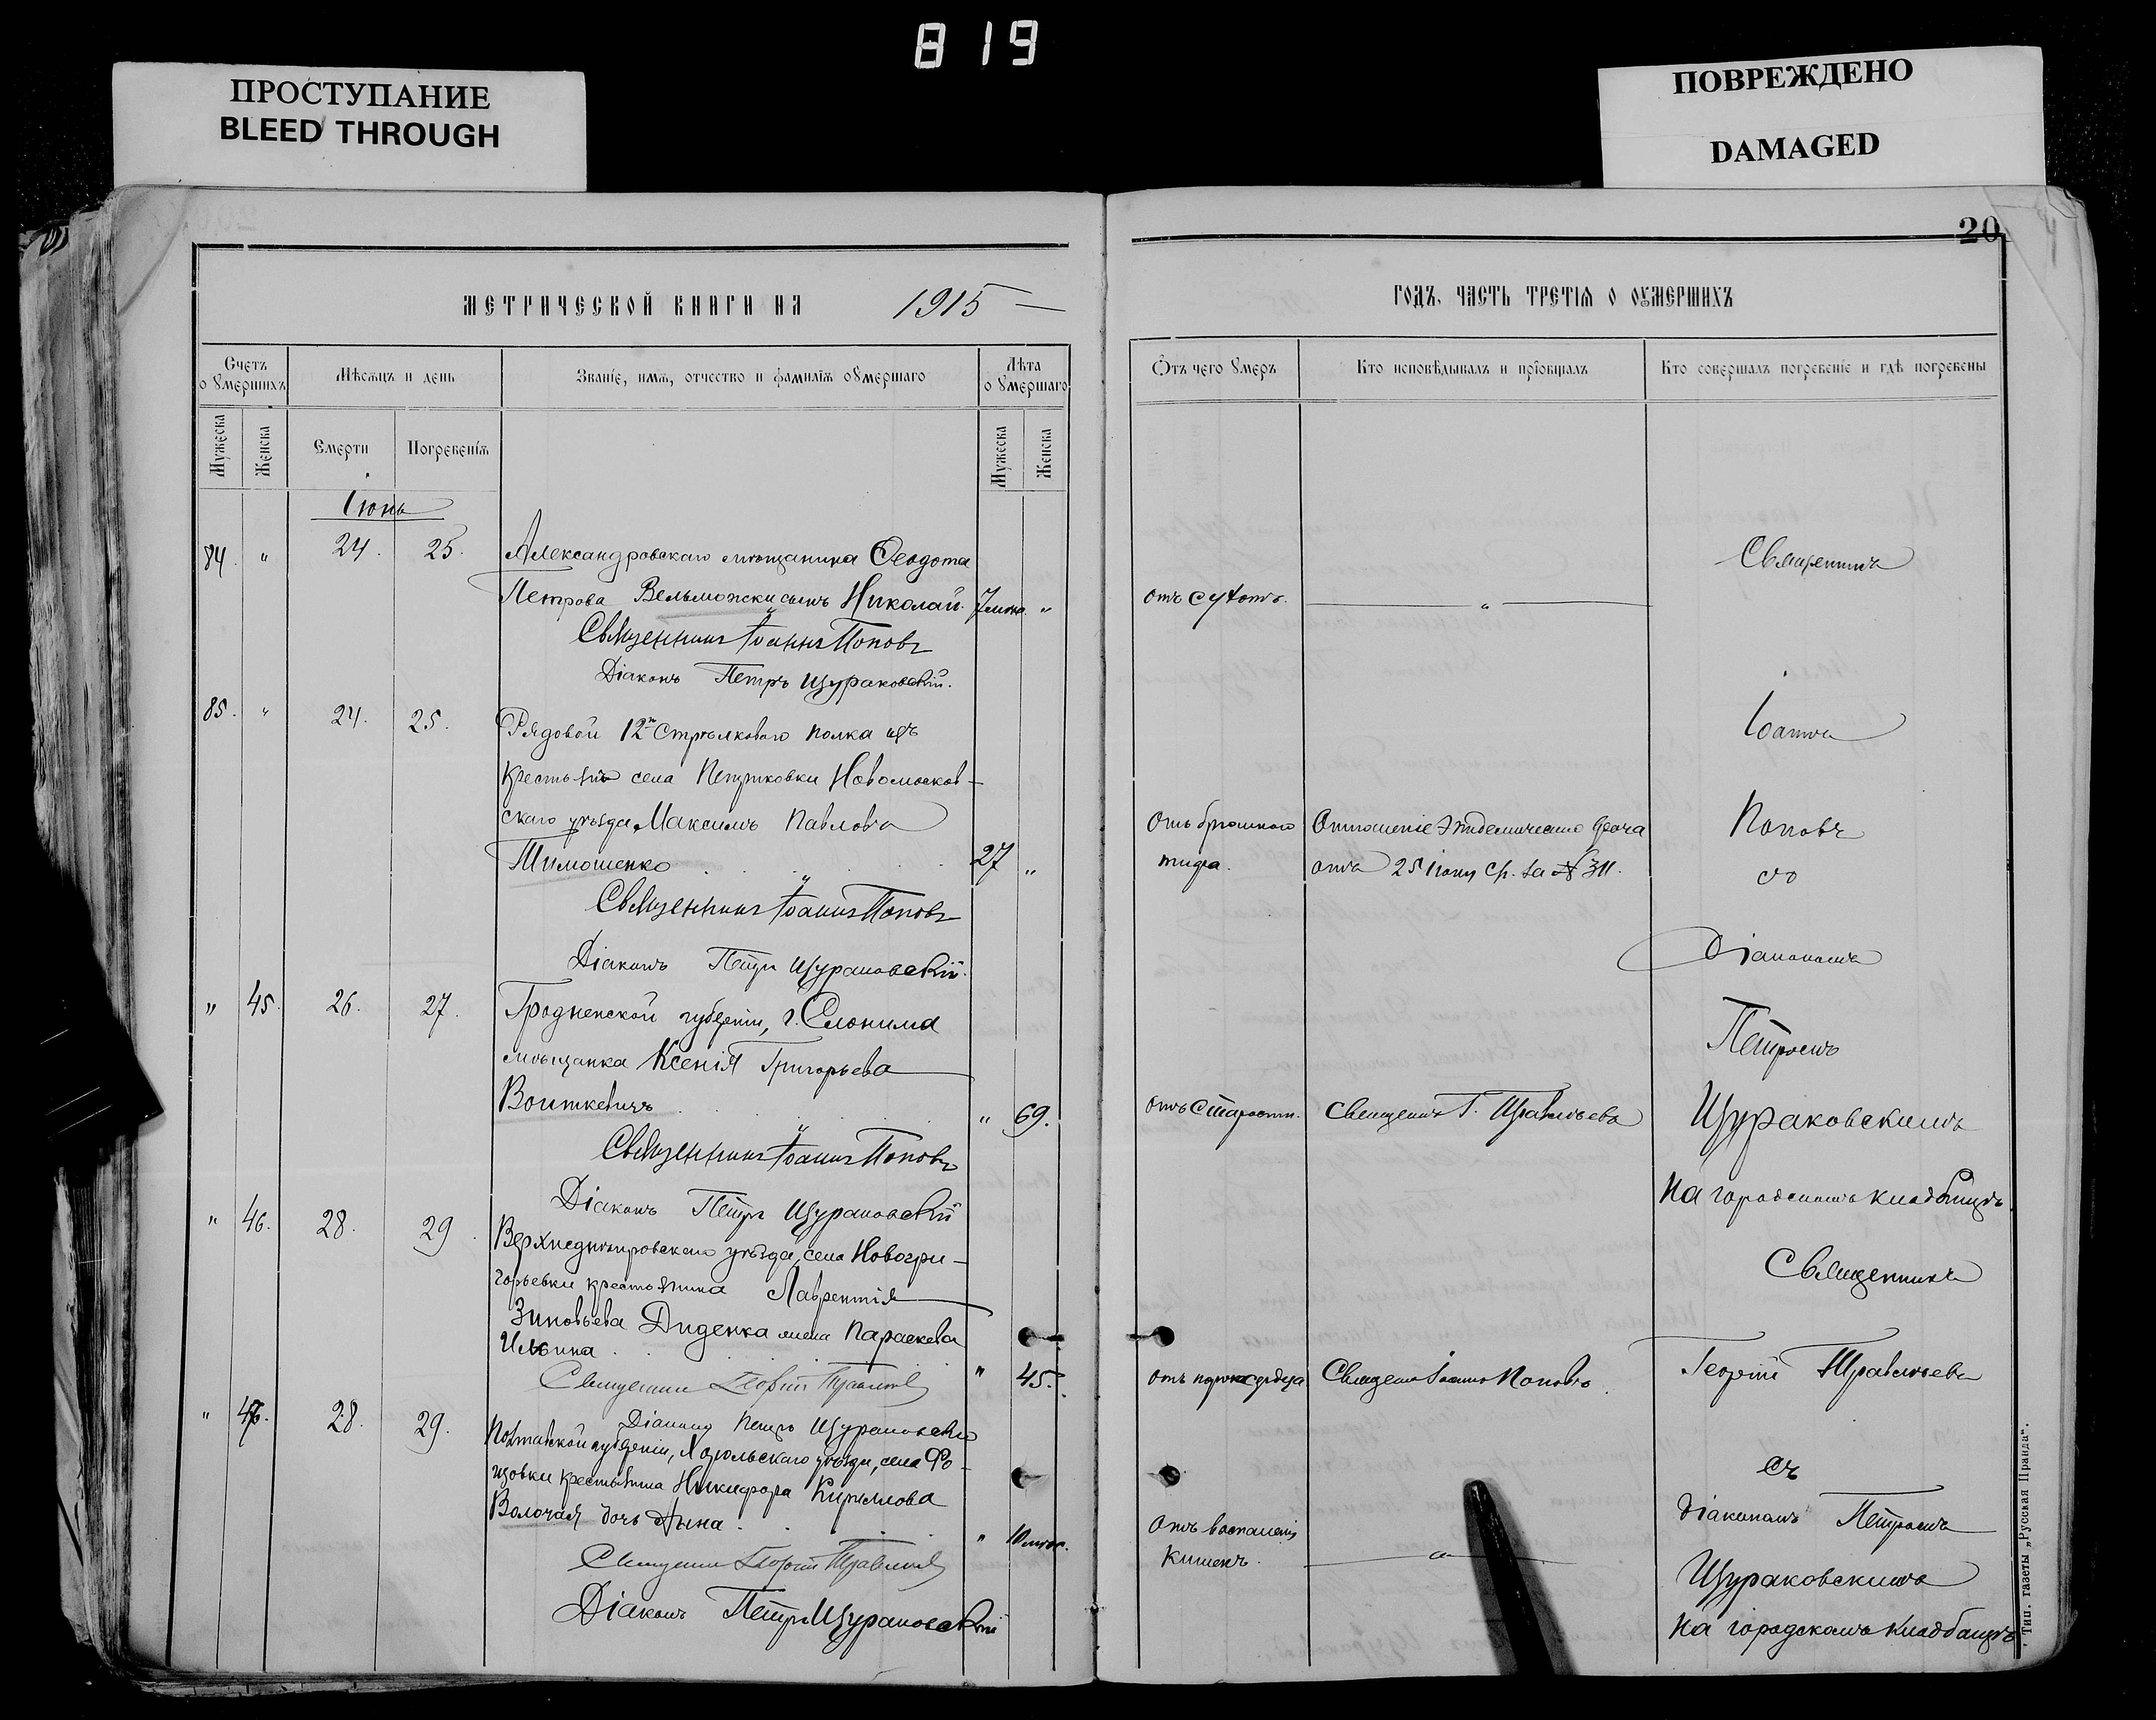 819
ПРОСТУПАНИЕ
BLEED THROUGH
ПОВРЕЖДЕНО
DAMAGED
20
МЕТРИЧЕСКОЙ КНИГИ НА 1915
ГОДЪ, ЧАСТЬ ТРЕТІѦ О ОУМЕРШИХЪ
Счетъ оумершихъ
Мѣсяцъ и день
Званіе, имя, отчество и фамилія оумершаго
Лѣта оумершаго
Отъ чего умеръ
Кто исповѣдывалъ и пріобщалъ
Кто совершалъ погребеніе и гдѣ погребены
Мужеска
Женска
Смерти
Погребенія
Мужеска
Женска
Іюнь
84. " 24. 25. Александровскаго мѣщанина Ѳеодота
Петрова Вельможки сынъ Николай. "
Священникъ Іоаннъ Поповъ
Діаконъ Петръ Щураковскій.
85. " 24. 25. Рядовой 12 Стрѣлковаго полка изъ
крестьянъ села Новомосков-
скаго уѣзда, Максимъ Павловъ
Тимошенко 27 "
Отъ брюшного
тифа.
Отношеніе эпидемическаго врача
отъ 25 Іюня с/г. за № 311.
Священникъ Іоаннъ Поповъ
Діаконъ Петръ Щураковскій.
" 45. 26. 27. Гродненской губерніи, г. Слонима
мѣщанка Ксенія Григорьева
Войткевичъ " 69.
отъ старости. Священникъ Г.
Священникъ Іоаннъ Поповъ
Діаконъ Петръ Щураковскій
" 46. 28. 29. Верхнеднѣпровскаго уѣзда, села Новогри-
горьевки крестьянина Лаврентія
Зиновьева Диденка жена Параскева
Ильина " 45.
отъ порока сердца Священникъ Іоаннъ Поповъ.
Священникъ Георгій
Діаконъ Петръ Щураковскій
" 47. 28. 29. Полтавской губерніи, уѣзда, села
крестьянина Никифора Кириллова
Волочая дочь "
Отъ воспаленія
кишекъ.
Священникъ Георгій
Діаконъ Петръ Щураковскій
Священникъ
Іоаннъ
Поповъ
со
Діакономъ
Петромъ
Щураковскимъ
на городскомъ кладбищѣ.
Священникъ
Георгій
съ
діакономъ Петромъ
Щураковскимъ
на городскомъ кладбищѣ
Тип. газеты „Русская Правда“.